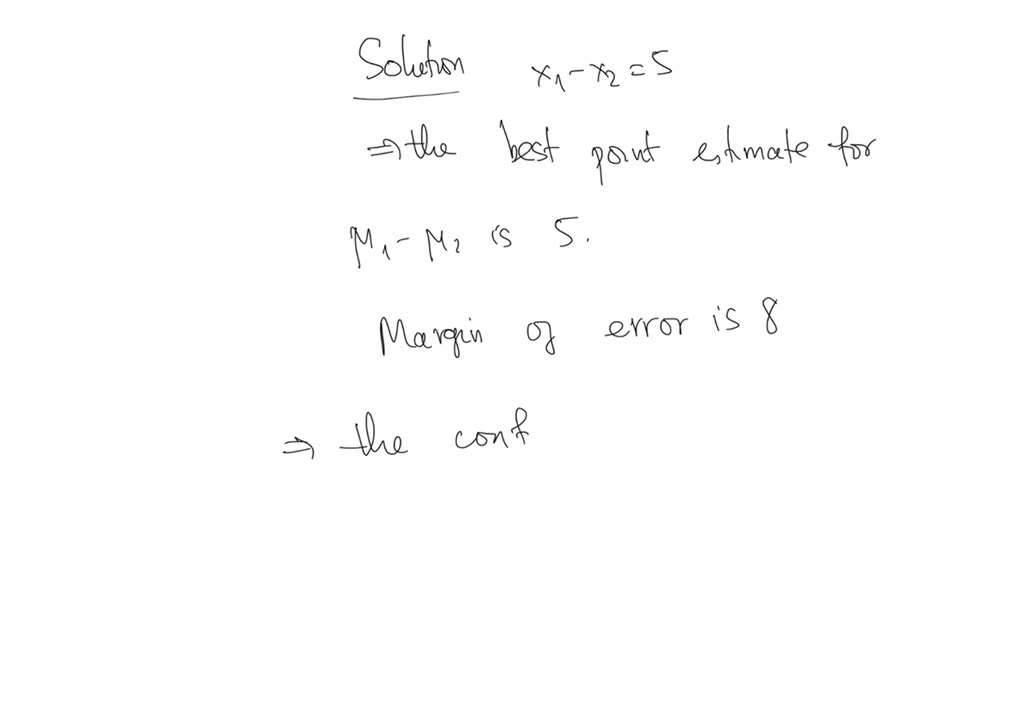 Solution x₁-x₂=5
⇒ the best point estimate for
μ₁-μ₂ is 5.
Margin of error is 8
⇒ the conf